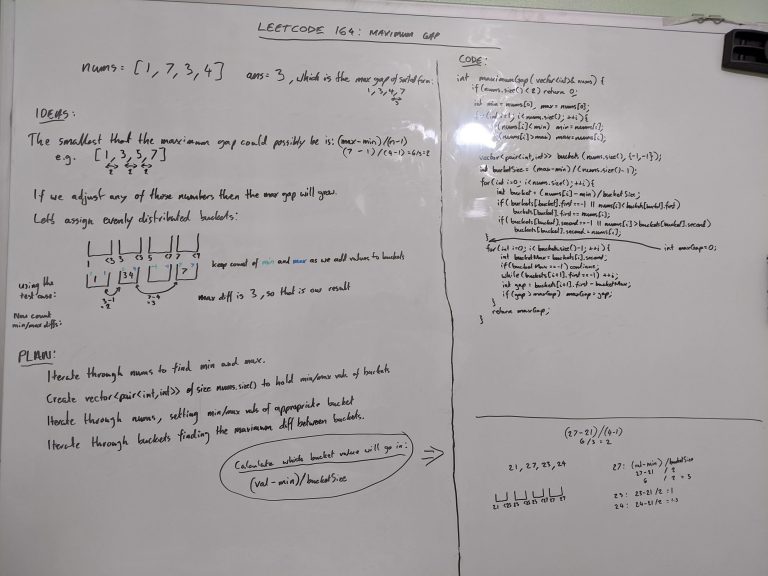 LEETCODE 164: MAXIMUM GAP
nums = [1, 7, 3, 4]
ans = 3, which is the max gap of sorted form:
1, 3, 4, 7
3
IDEAS:
The smallest that the maximum gap could possibly be is: (max-min)/(n-1)
e.g. [1, 3, 5, 7]
(7 - 1)/(4-1) = 6/3 = 2
2 2 2
If we adjust any of those numbers then the max gap will grow.
Let's assign evenly distributed buckets:
1 <3 3 <5 5 <7 7 <9
using the
test case:
1 34 7
keep count of min and max as we add values to buckets
Now count
min/max diffs:
3-1
=2
7-4
=3
max diff is 3, so that is our result
PLAN:
Iterate through nums to find min and max.
Create vector<pair<int,int>> of size nums.size() to hold min/max vals of buckets
Iterate through nums, setting min/max vals of appropriate bucket
Iterate through buckets finding the maximum diff between buckets.
Calculate which bucket value will go in:
(val-min)/bucketSize
CODE:
int maximumGap(vector<int>& nums) {
if (nums.size() < 2) return 0;
int min = nums[0], max = nums[0];
for(int i=1; i<nums.size(); ++i){
if(nums[i]<min) min=nums[i];
if(nums[i]>max) max=nums[i];
vector<pair<int,int>> buckets (nums.size(), {-1,-1});
int bucketSize = (max-min)/(nums.size()-1);
for(int i=0; i<nums.size(); ++i){
int bucket = (nums[i]-min)/bucketSize;
if(buckets[bucket].first==-1 || nums[i]<buckets[bucket].first)
buckets[bucket].first = nums[i];
if(buckets[bucket].second==-1 || nums[i]>buckets[bucket].second)
buckets[bucket].second=nums[i];
}
int maxGap=0;
for(int i=0; i<buckets.size()-1; ++i){
int bucketMax = buckets[i].second;
if(bucketMax==-1) continue;
while(buckets[i+1].first==-1) ++i;
int gap = buckets[i+1].first - bucketMax;
if(gap > maxGap) maxGap=gap;
}
return maxGap;
}
(27-21)/(4-1)
6/3 = 2
21, 27, 23, 24
27: (val-min)/bucketSize
27-21 / 2
6 / 2 = 3
23: 23-21/2 = 1
24: 24-21/2 = 1.5
21 <23 23 <25 25 <27 27